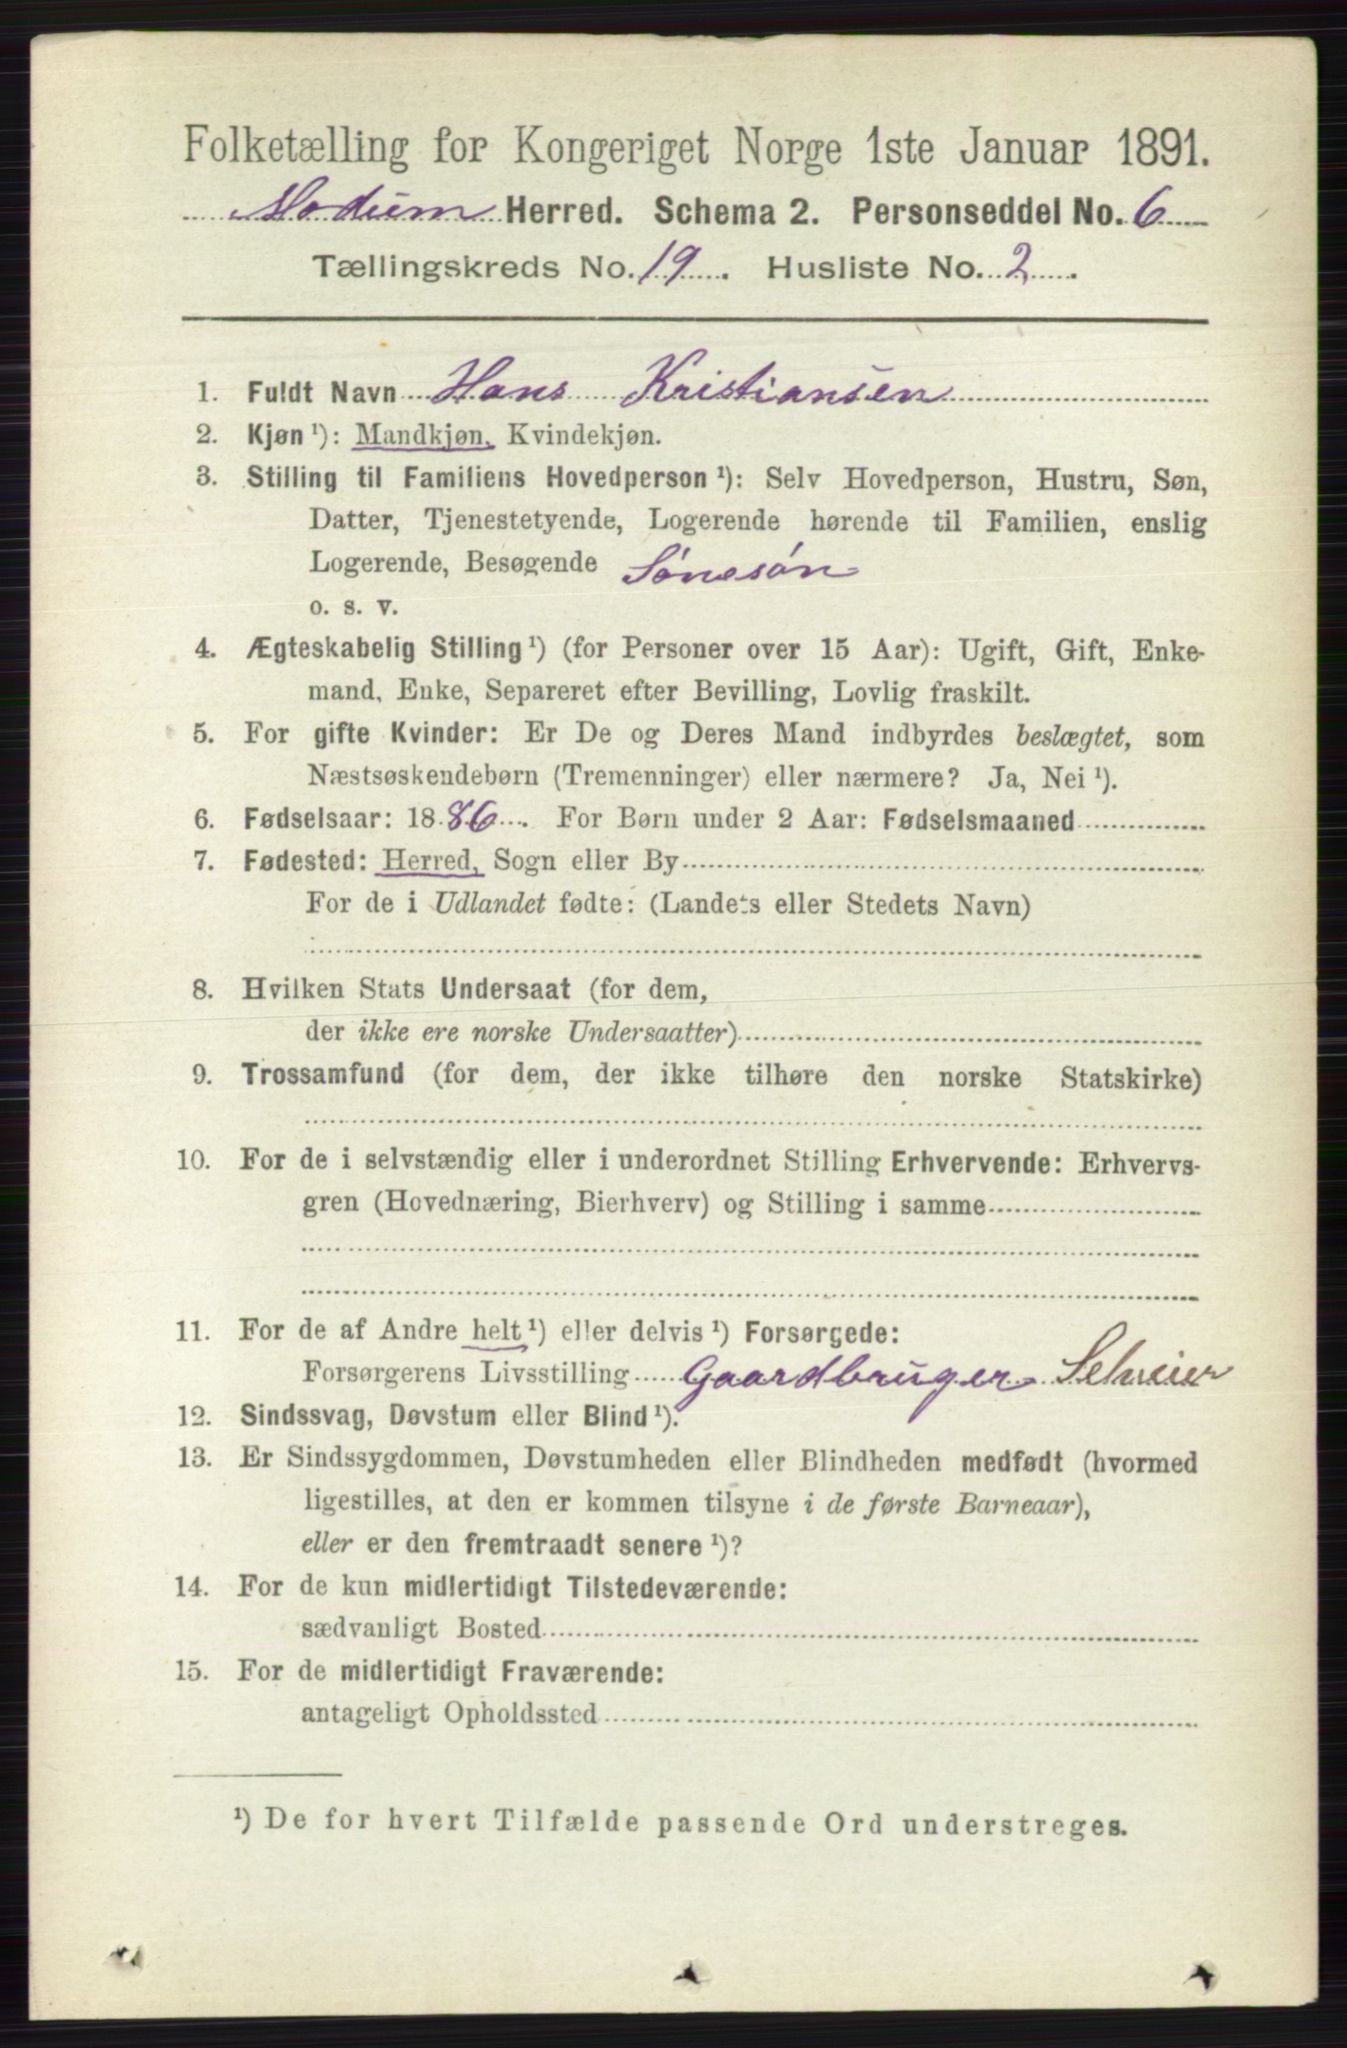 Folketælling for Kongeriget Norge 1ste Januar 1891.
Modum Herred. Schema 2. Personseddel No. 6
Tællingskreds No. 19. Husliste No. 2.
1. Fuldt Navn Hans Kristiansen
2. Kjøn ¹): Mandkjøn, Kvindekjøn.
3. Stilling til Familiens Hovedperson ¹): Selv Hovedperson, Hustru, Søn,
Datter, Tjenestetyende, Logerende hørende til Familien, enslig
Logerende, Besøgende Sønesøn
o. s. v.
4. Ægteskabelig Stilling ¹) (for Personer over 15 Aar): Ugift, Gift, Enke-
mand, Enke, Separeret efter Bevilling, Lovlig fraskilt.
5. For gifte Kvinder: Er De og Deres Mand indbyrdes beslægtet, som
Næstsøskendebørn (Tremenninger) eller nærmere? Ja, Nei ¹).
6. Fødselsaar: 1886. For Børn under 2 Aar: Fødselsmaaned
7. Fødested: Herred, Sogn eller By
For de i Udlandet fødte: (Landets eller Stedets Navn)
8. Hvilken Stats Undersaat (for dem,
der ikke ere norske Undersaatter)
9. Trossamfund (for dem, der ikke tilhøre den norske Statskirke)
10. For de i selvstændig eller i underordnet Stilling Erhvervende: Erhvervs-
gren (Hovednæring, Bierhverv) og Stilling i samme
11. For de af Andre helt ¹) eller delvis ¹) Forsørgede:
Forsørgerens Livsstilling Gaardbruger Selveier
12. Sindssvag, Døvstum eller Blind ¹).
13. Er Sindssygdommen, Døvstumheden eller Blindheden medfødt (hvormed
ligestilles, at den er kommen tilsyne i de første Barneaar),
eller er den fremtraadt senere ¹)?
14. For de kun midlertidigt Tilstedeværende:
sædvanligt Bosted
15. For de midlertidigt Fraværende:
antageligt Opholdssted
¹) De for hvert Tilfælde passende Ord understreges.